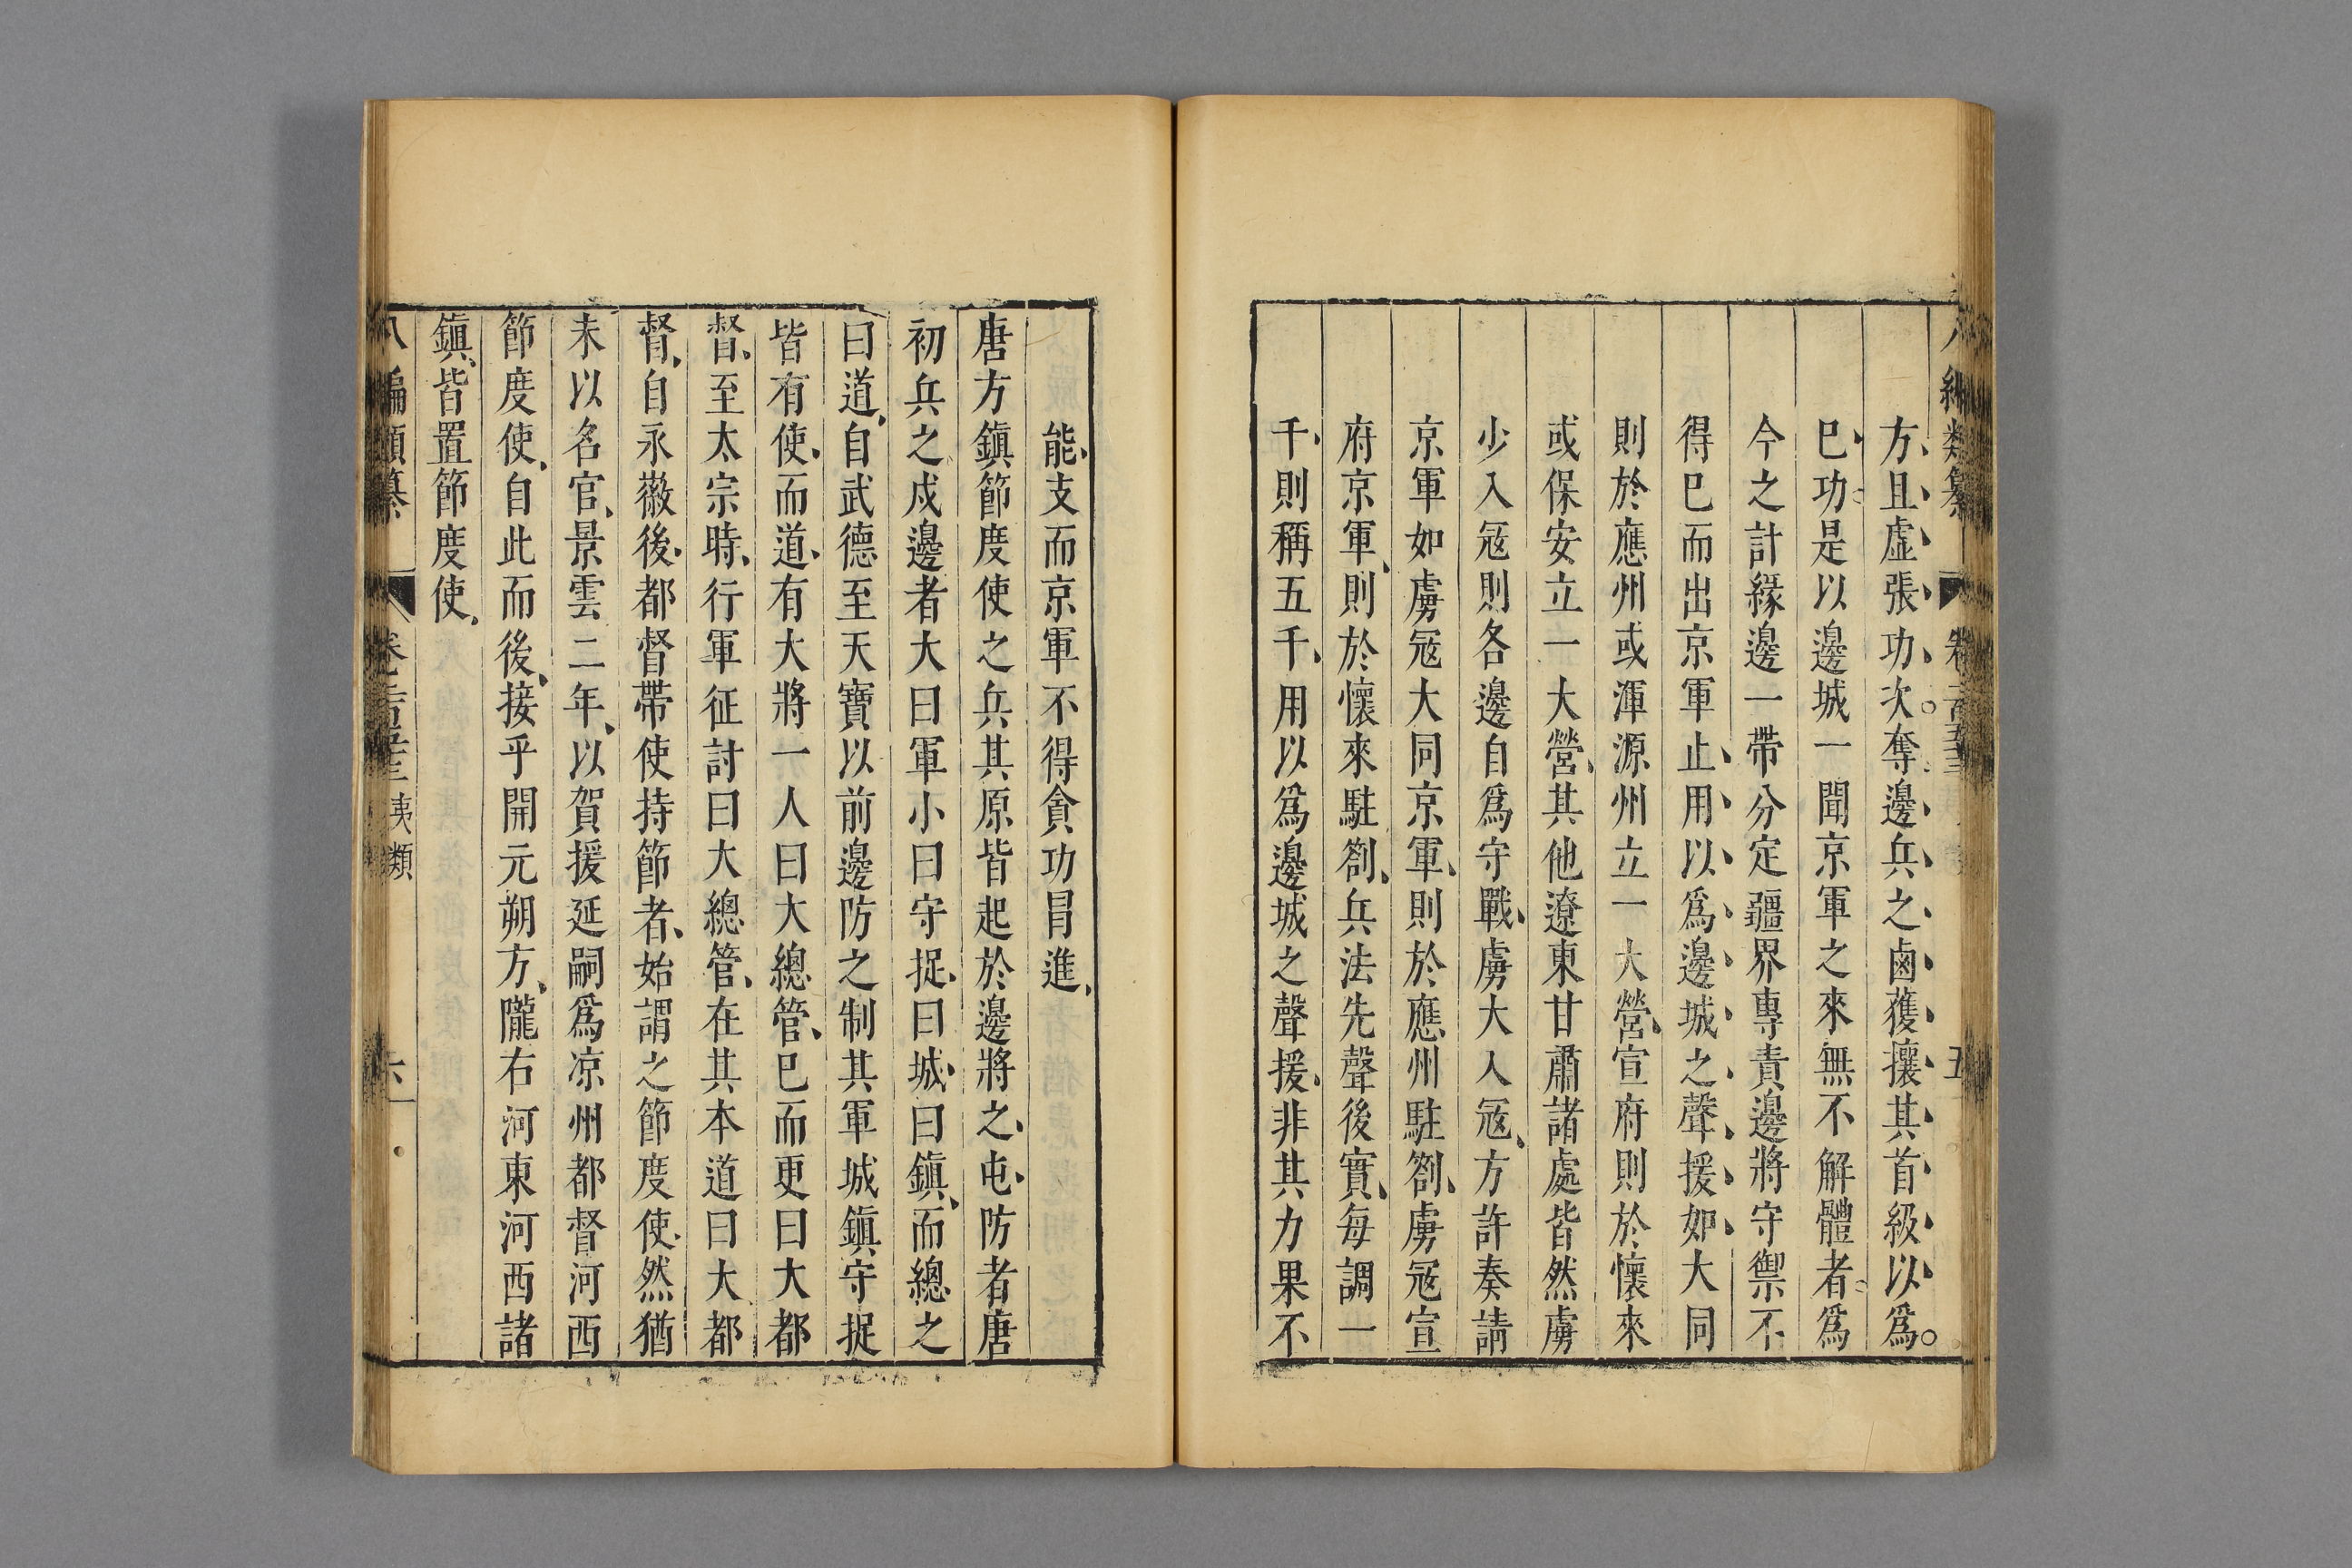 類纂
五
方且虛張功次奪邊兵之鹵獲攘其首級以爲
巳功是以邊城一聞京軍之來無不解體者爲
今之計緣邊一帶分定疆界專責邊將守禦不
得巳而出京軍止用以爲邊城之聲援如大同
則於應州或渾源州立一大營宣府則於懷來
或保安立一大營其他遼東甘肅諸處皆然虜
少入冦則各邊自爲守戰虜大入冦方許奏請
京軍如虜冦大同京軍則於應州駐劄虜冦宣
府京軍則於懷來駐劄兵法先聲後實每調一
千則稱五千用以爲邊城之聲援非其力果不
能支而京軍不得貪功冒進
唐方鎮節度使之兵其原皆起於邊將之屯防者唐
初兵之戍邊者大曰軍小曰守捉曰城曰鎮而總之
曰道自武德至天寶以前邊防之制其軍城鎮守捉
皆有使而道有大將一人曰大總管巳而更曰大都
督至太宗時行軍征討曰大總管在其本道曰大都
督自永徽後都督帶使持節者始謂之節度使然猶
未以名官景雲二年以賀援延嗣爲凉州都督河西
節度使自此而後接乎開元朔方隴右河東河西諸
鎮皆置節度使
八編類纂 夷類 六